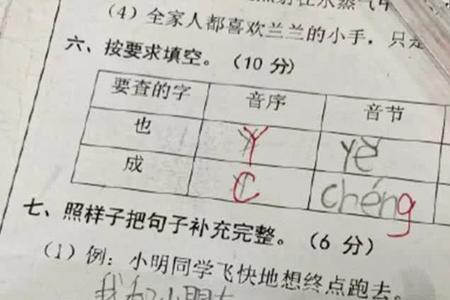 (4) 全家人都喜欢兰兰的小手，只是
六、按要求填空。（10 分）
要查的字 音序 音节
也 Y yě
成 C chéng
七、照样子把句子补充完整。（6 分）
(1) 例：小明同学飞快地想终点跑去。